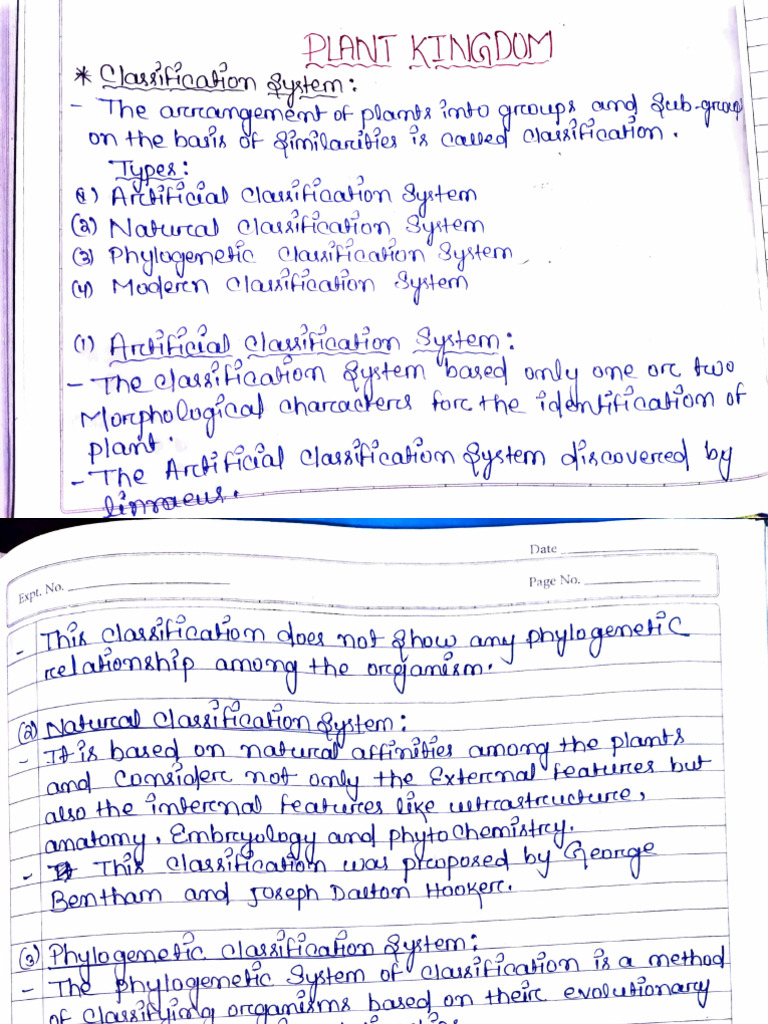 PLANT KINGDOM
* Classification System:
- The arrangement of plants into groups and Sub-group
on the basis of Similarities is called Classification.
Types:
(1) Artificial Classification System
(2) Natural Classification System
(3) Phylogenetic Classification System
(4) Modern Classification System
(1) Artificial Classification System:
- The Classification System based only one or two
Morphological characters for the identification of
plant.
- The Artificial Classification System discovered by
linnaeus.
Date
Expt. No.
Page No.
- This Classification does not Show any phylogenetic
relationship among the organism.
(2) Natural Classification System:
- It is based on natural affinities among the plants
and Consider not only the External features but
also the internal features like ultrastructure,
anatomy, Embryology and phytochemistry.
- This Classification was proposed by George
Bentham and Joseph Dalton Hooker.
(3) Phylogenetic Classification System:
- The phylogenetic System of Classification is a method
of Classifying organisms based on their evolutionary